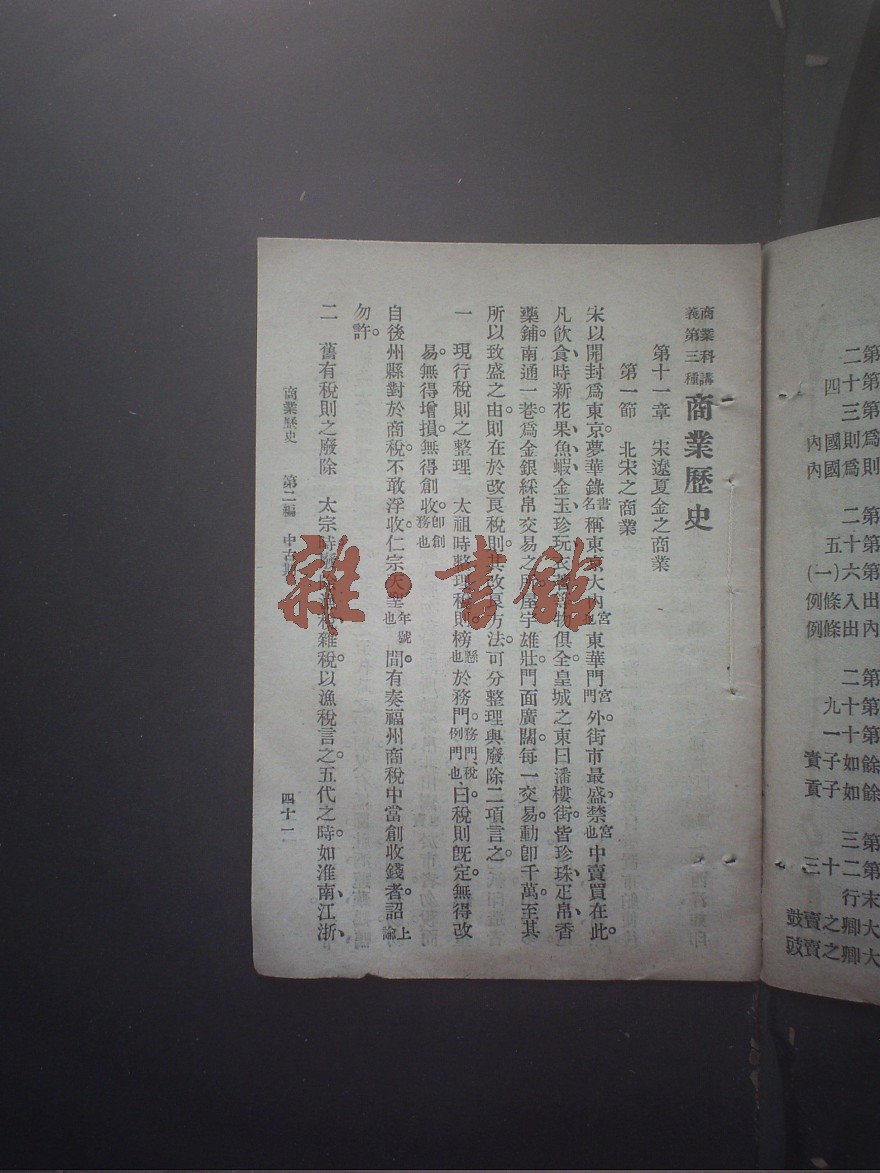 第二
第十四
第三
爲則國內
則爲國內
第二
第十五
第六(一)
出入條例
內出條例
第二
第十九
第十一
餘如子貴
餘如子貢
第三
第二十三
末行
大卿之賣鼓
大卿之賣豉
商業科講義第三種 商業歷史
第十一章 宋遼夏金之商業
第一節 北宋之商業
宋以開封爲東京。夢華錄書名稱東京大內宮也東華門宮門外。街市最盛。禁宮也中賣買在此。
凡飲食、時新花果、魚蝦、金玉、珍玩、衣着物俱全。皇城之東曰潘樓街。皆珍珠、疋帛、香
藥鋪。南通一巷。爲金銀綵帛交易之所。屋宇雄壯。門面廣闊。每一交易。動卽千萬。至其
所以致盛之由。則在於改良稅則。其改良方法。可分整理與廢除二項言之。
一 現行稅則之整理 太祖時整理稅則。榜懸也於務門。務門、稅例門也。曰稅則旣定。無得改
易。無得增損。無得創收。卽創務也
自後州縣對於商稅。不敢浮收。仁宗天聖年號也。間有奏福州商稅中當創收錢者。詔上諭
勿許。
二 舊有稅則之廢除 太宗時廢除漁稅雜稅。以漁稅言之。五代之時。如淮南、江浙、
商業歷史 第二編 中古期 四十一
雜·書館